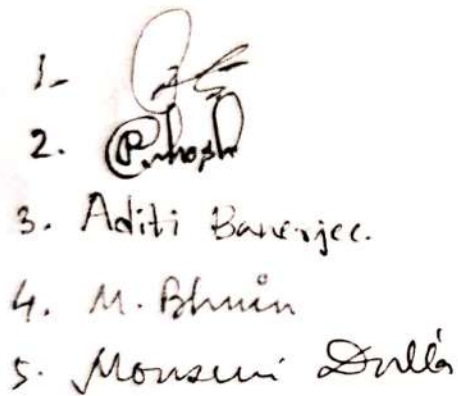 1-
2. P. Ghosh
3. Aditi Banerjee.
4. M. Bhunia
5. Mousumi Dutta